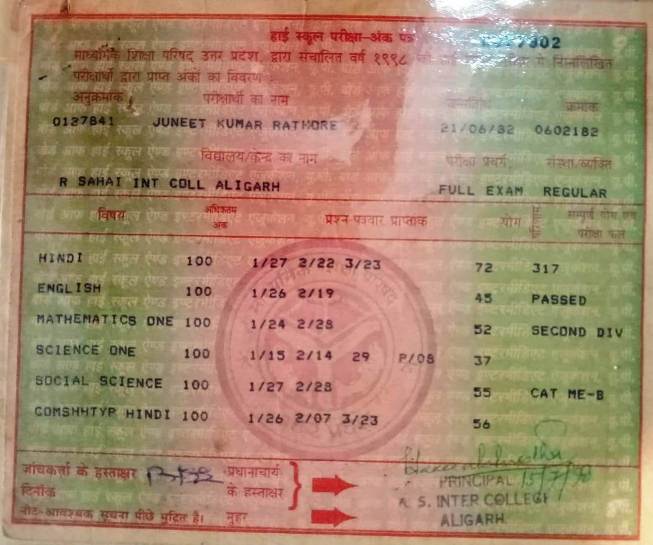 हाई स्कूल परीक्षा-अंक पत्र
माध्यमिक शिक्षा परिषद उत्तर प्रदेश, द्वारा संचालित वर्ष १९९८ में निम्नलिखित
परीक्षार्थी द्वारा प्राप्त अंकों का विवरण :
अनुक्रमांक परीक्षार्थी का नाम जन्मतिथि क्रमांक
0137841 JUNEET KUMAR RATHORE 21/06/82 0602182
विद्यालय/केन्द्र का नाम परीक्षा प्रवर्ग संस्था/व्यक्ति
R SAHAI INT COLL ALIGARH FULL EXAM REGULAR
विषय अधिकतम अंक प्रश्न-पत्रवार प्राप्तांक योग सम्पूर्ण योग एवं परीक्षा फल
HINDI 100 1/27 2/22 3/23 72 317
ENGLISH 100 1/26 2/19 45 PASSED
MATHEMATICS ONE 100 1/24 2/28 52 SECOND DIV
SCIENCE ONE 100 1/15 2/14 29 P/08 37
SOCIAL SCIENCE 100 1/27 2/28 55 CAT ME-B
COMSHHTYP HINDI 100 1/26 2/07 3/23 56
जांचकर्त्ता के हस्ताक्षर प्रधानाचार्य
दिनांक के हस्ताक्षर PRINCIPAL 15/7/98
नोट-आवश्यक सूचना पीछे मुद्रित है। मुहर S. INTER COLLEGE
ALIGARH